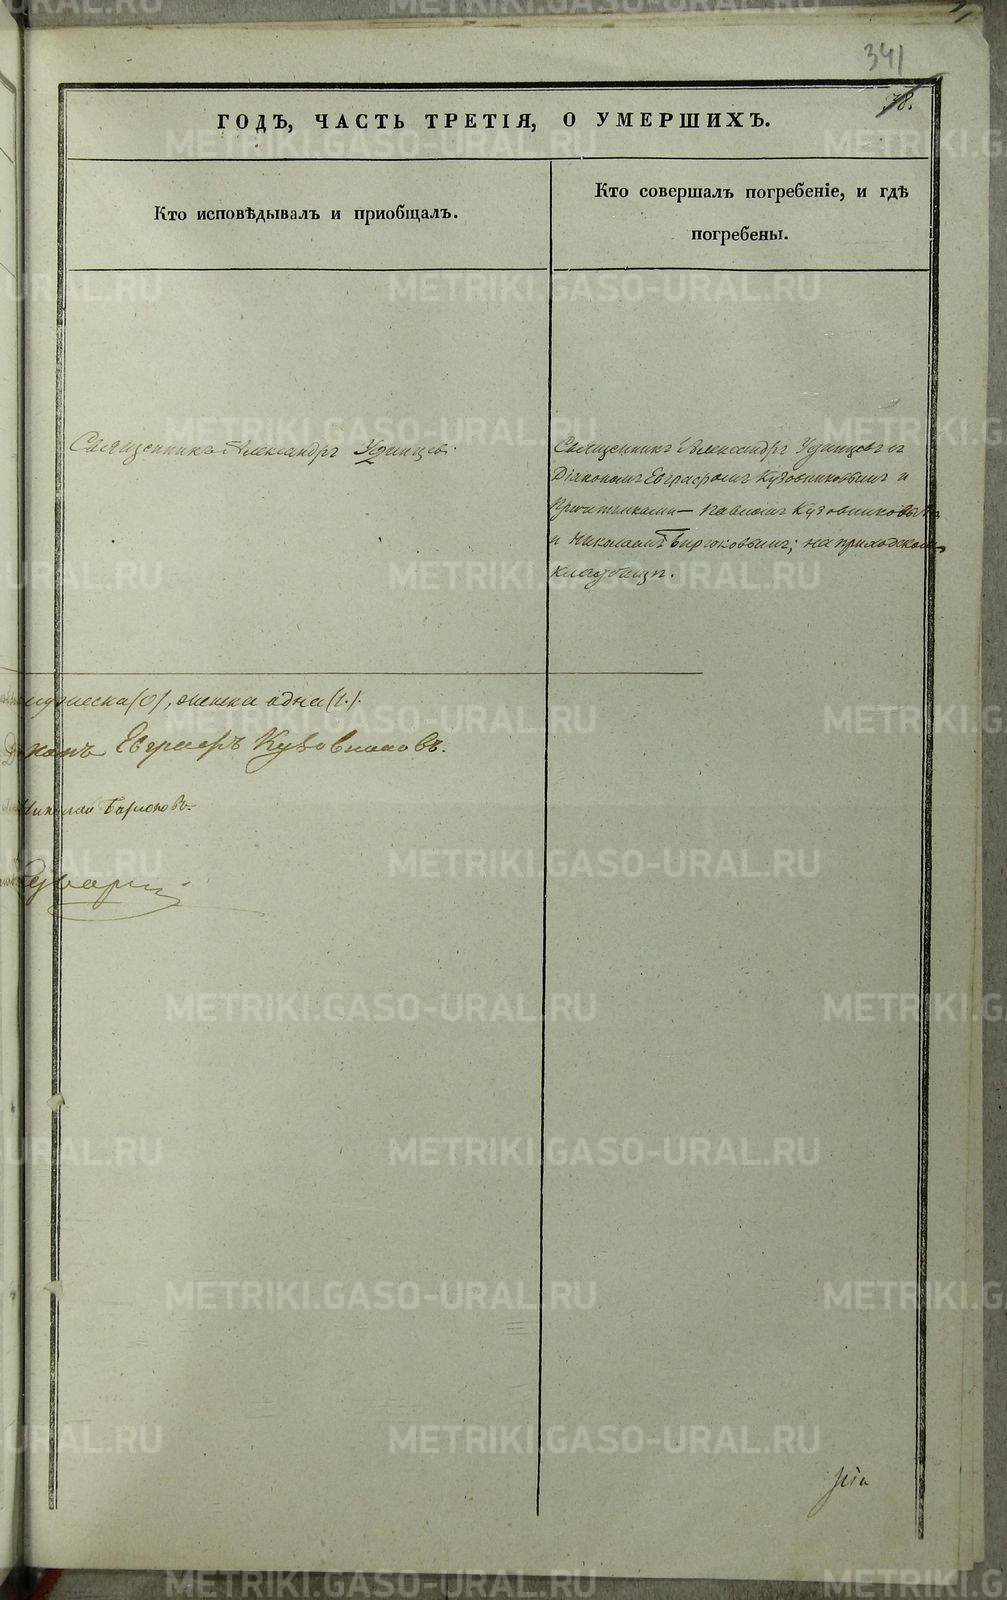 341
78.
ГОДЪ, ЧАСТЬ ТРЕТІЯ, О УМЕРШИХЪ.
Кто исповѣдывалъ и пріобщалъ.
Кто совершалъ погребеніе, и гдѣ
погребены.
Священникъ Александръ Удинцевъ.
Священникъ Александръ Удинцевъ съ
Діакономъ Евграфомъ Кузовниковымъ и
Причетниками — Павломъ Кузовниковымъ
и Николаемъ Бирюковымъ; на приходскомъ
кладбищѣ.
мужеска (0), женска одна (1.).
Евграфъ Кузовниковъ.
Николай Бирюковъ.
METRIKI.GASO-URAL.RU